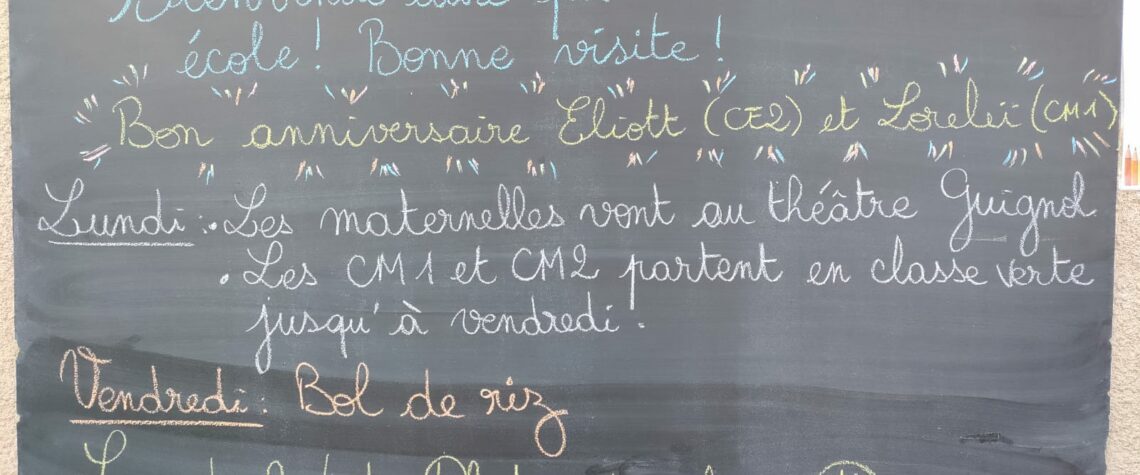 école ! Bonne visite !
Bon anniversaire Eliott (CE2) et Loreleï (CM1)
Lundi : • Les maternelles vont au théâtre Guignol
• Les CM1 et CM2 partent en classe verte
jusqu'à vendredi.
Vendredi : Bol de riz